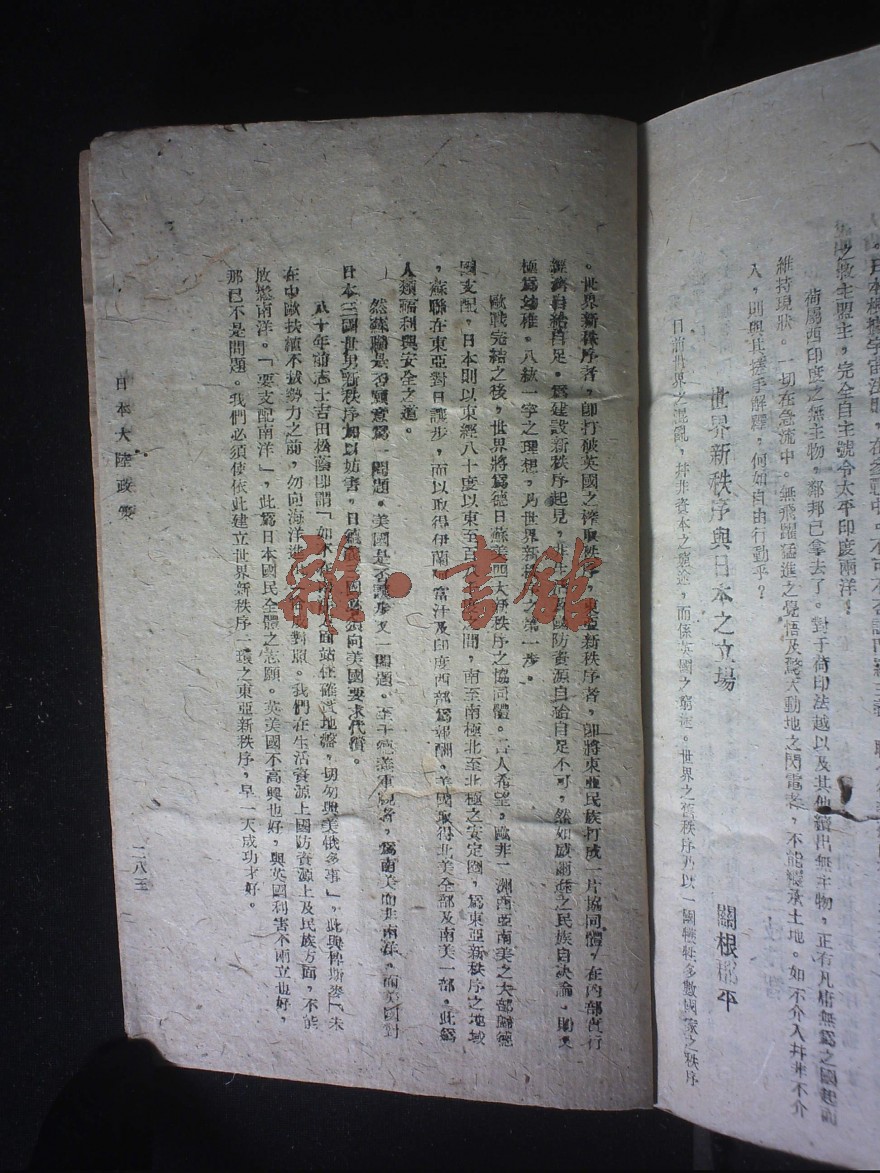 荷屬西印度之無主物，鄰邦已拿去了。對于荷印法越以及其他續出無主物，正有凡庸無為之國起而
維持現狀。一切在急流中。無飛躍猛進之覺悟及驚天動地之閃電案，不能繼承土地。如不介入幷非不介
入，則與其搔手解釋，何如自由行動乎？
世界新秩序與日本之立場
關根郡平
目前世界之混亂，幷非資本之窮途，而係英國之窮途。世界之舊秩序乃以一國犧牲多數國家之秩序
。世界新秩序者，卽打破英國之搾取秩序，東亞新秩序者，卽將東亞民族打成一片協同體，在內部實行
經濟自給自足。爲建設新秩序起見，非生活 國防資源自給自足不可，然如威爾遜之民族自決論，則又
極爲幼稚。八紘一宇之理想，乃世界新秩序之第一步。
歐戰完結之後，世界將爲德日蘇美四大新秩序之協同體。吾人希望，歐非二洲西亞南美之大部歸德
國支配，日本則以東經八十度以東至百 之間，南至南極北至北極之安定圈，爲東亞新秩序之地域
，蘇聯在東亞對日讓步，而以取得伊蘭，富汗及印度西部爲報酬。美國取得北美全部及南美一部。此爲
人類福利與安全之道。
然蘇聯是否願意爲一問題。美國是否讓步又一問題。至于 爲南美而非南洋。而美國對
日本三國世界新秩序加以妨害。日德義三國必須向美國要求代償。
八十年前志士吉田松蔭卽謂「如不在 方面站住確實地盤，切勿與美俄多事」，此與俾斯麥「未
在中歐扶植不拔勢力之前，勿向海洋進 對照。我們在生活資源上國防資源上及民族方面，不能
放鬆南洋。「要支配南洋」，此爲日本國民全體之志願。英美國不高興也好，與英國利害不兩立也好，
那已不是問題。我們必須使依此建立世界新秩序一環之東亞新秩序，早一天成功才好。
日本大陸政要
二八三
雜·書館